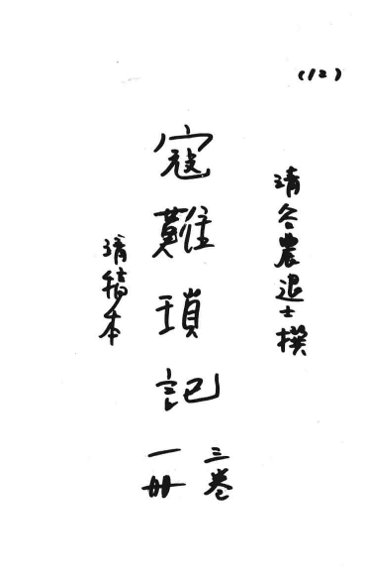 (12)
清冬農退士撰
寇難瑣記
三卷
一册
清稿本